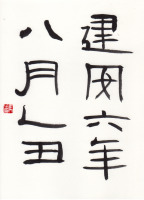 建安六年
八月乙丑